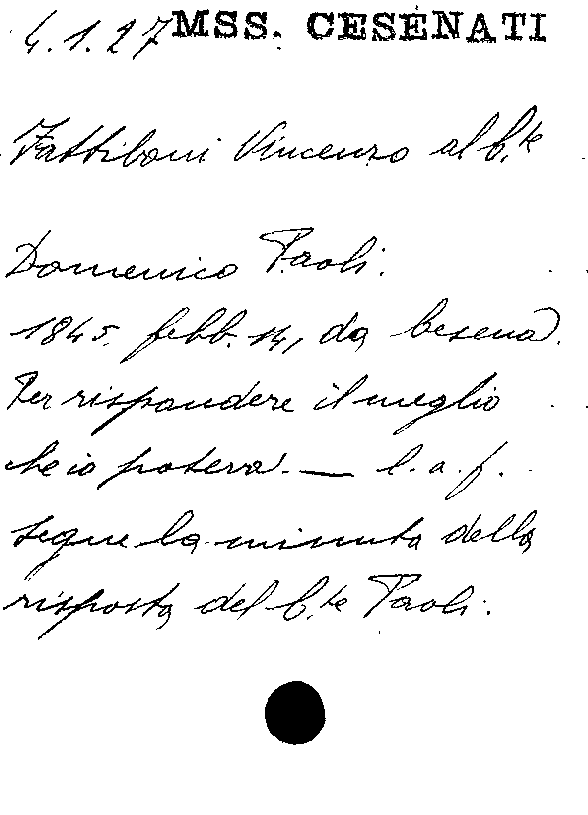 4.1.27 MSS. CESENATI
Fattiboni Vincenzo al C.te
Domenico Paoli.
1845. febb. 14, da Cesena.
Per rispondere il meglio
che io poteva. — C. a. f.
segue la minuta della
risposta del C.te Paoli.